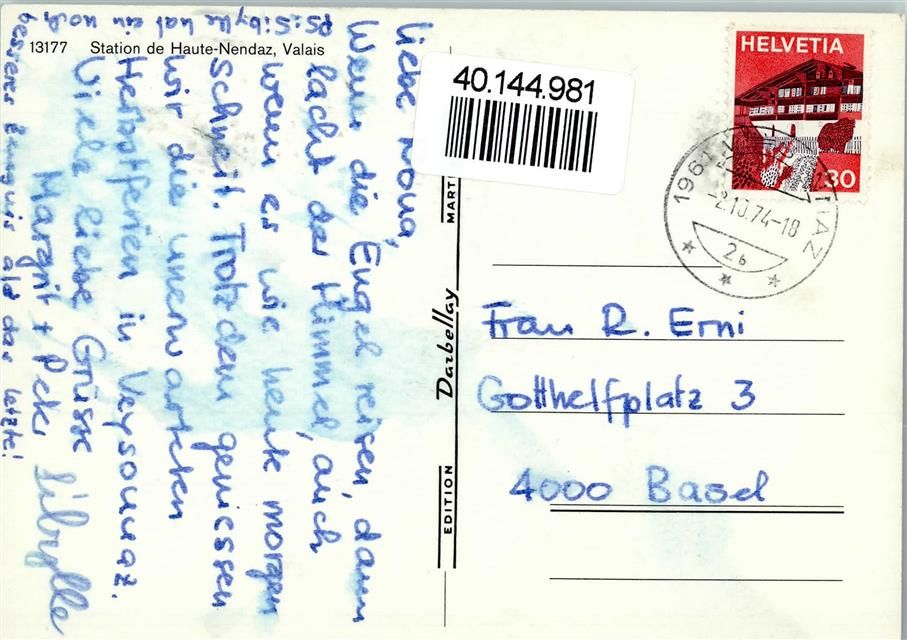 13177 Station de Haute-Nendaz, Valais
Liebe Nona,
Wenn die Engel reisen, dann
lacht der Himmel, auch
wenn es wie heute morgen
schneit. Trotzdem geniessen
wir die unerwarteten
Herbstferien in Veysonnaz.
Viele liebe Grüsse
Margrit + Peter Sibylle
PS: Sibylle hat ein noch
besseres Zeugnis als das letzte!
EDITION Darbellay MARTI
40.144.981
HELVETIA
30
1961 NAZ
-2.10.74-18
2b
Frau R. Erni
Gotthelfplatz 3
4000 Basel